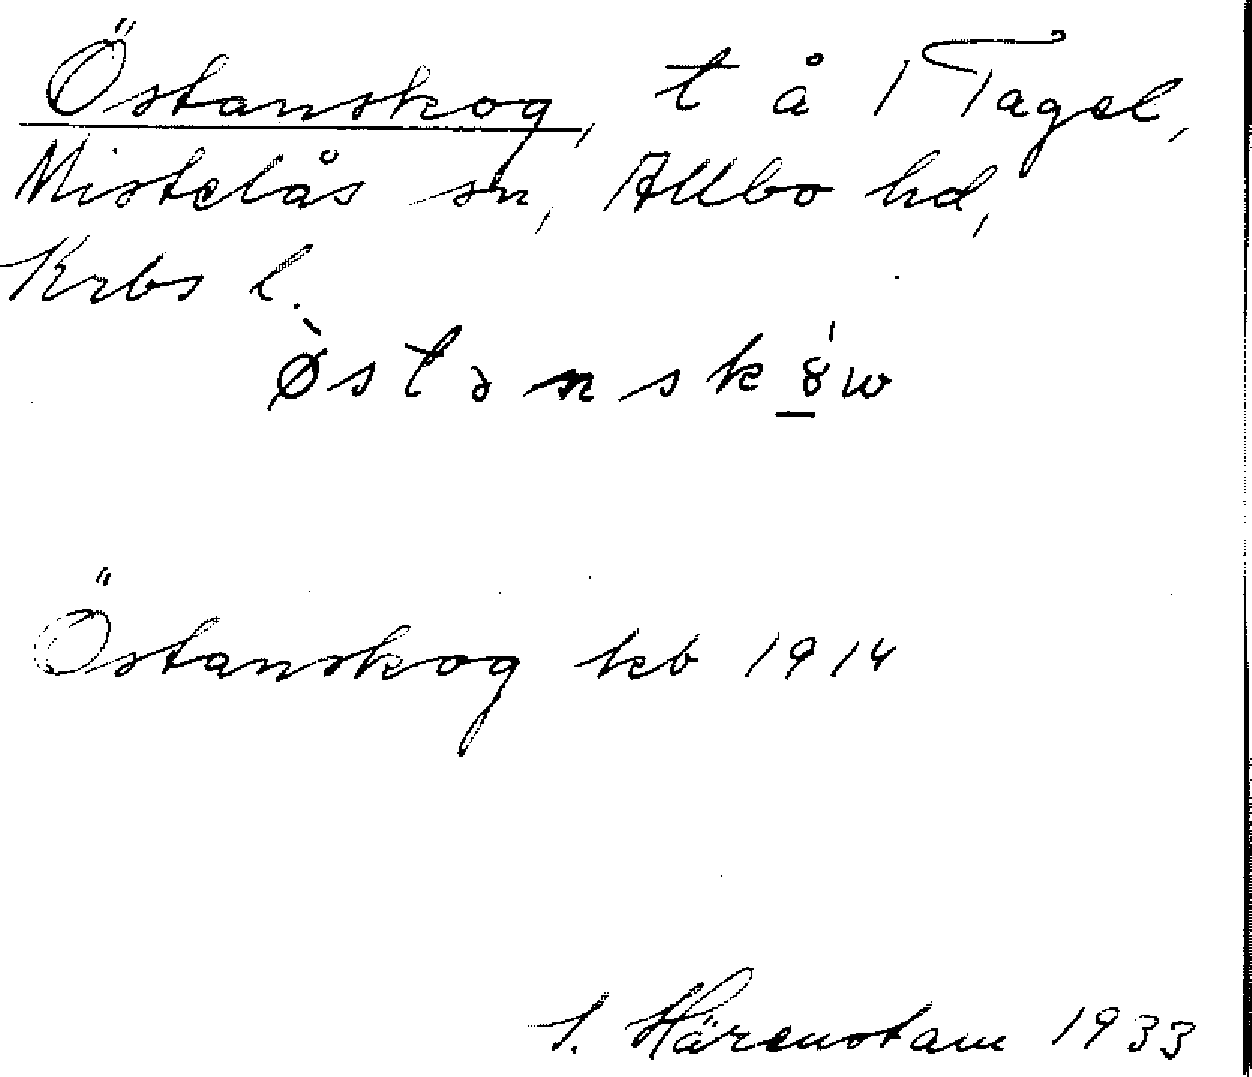 Östanskog, t å 1 Tagel,
Mistelås sn, Allbo hd,
Krbs l.
Östanskog kb 1914
Härenstam 1933